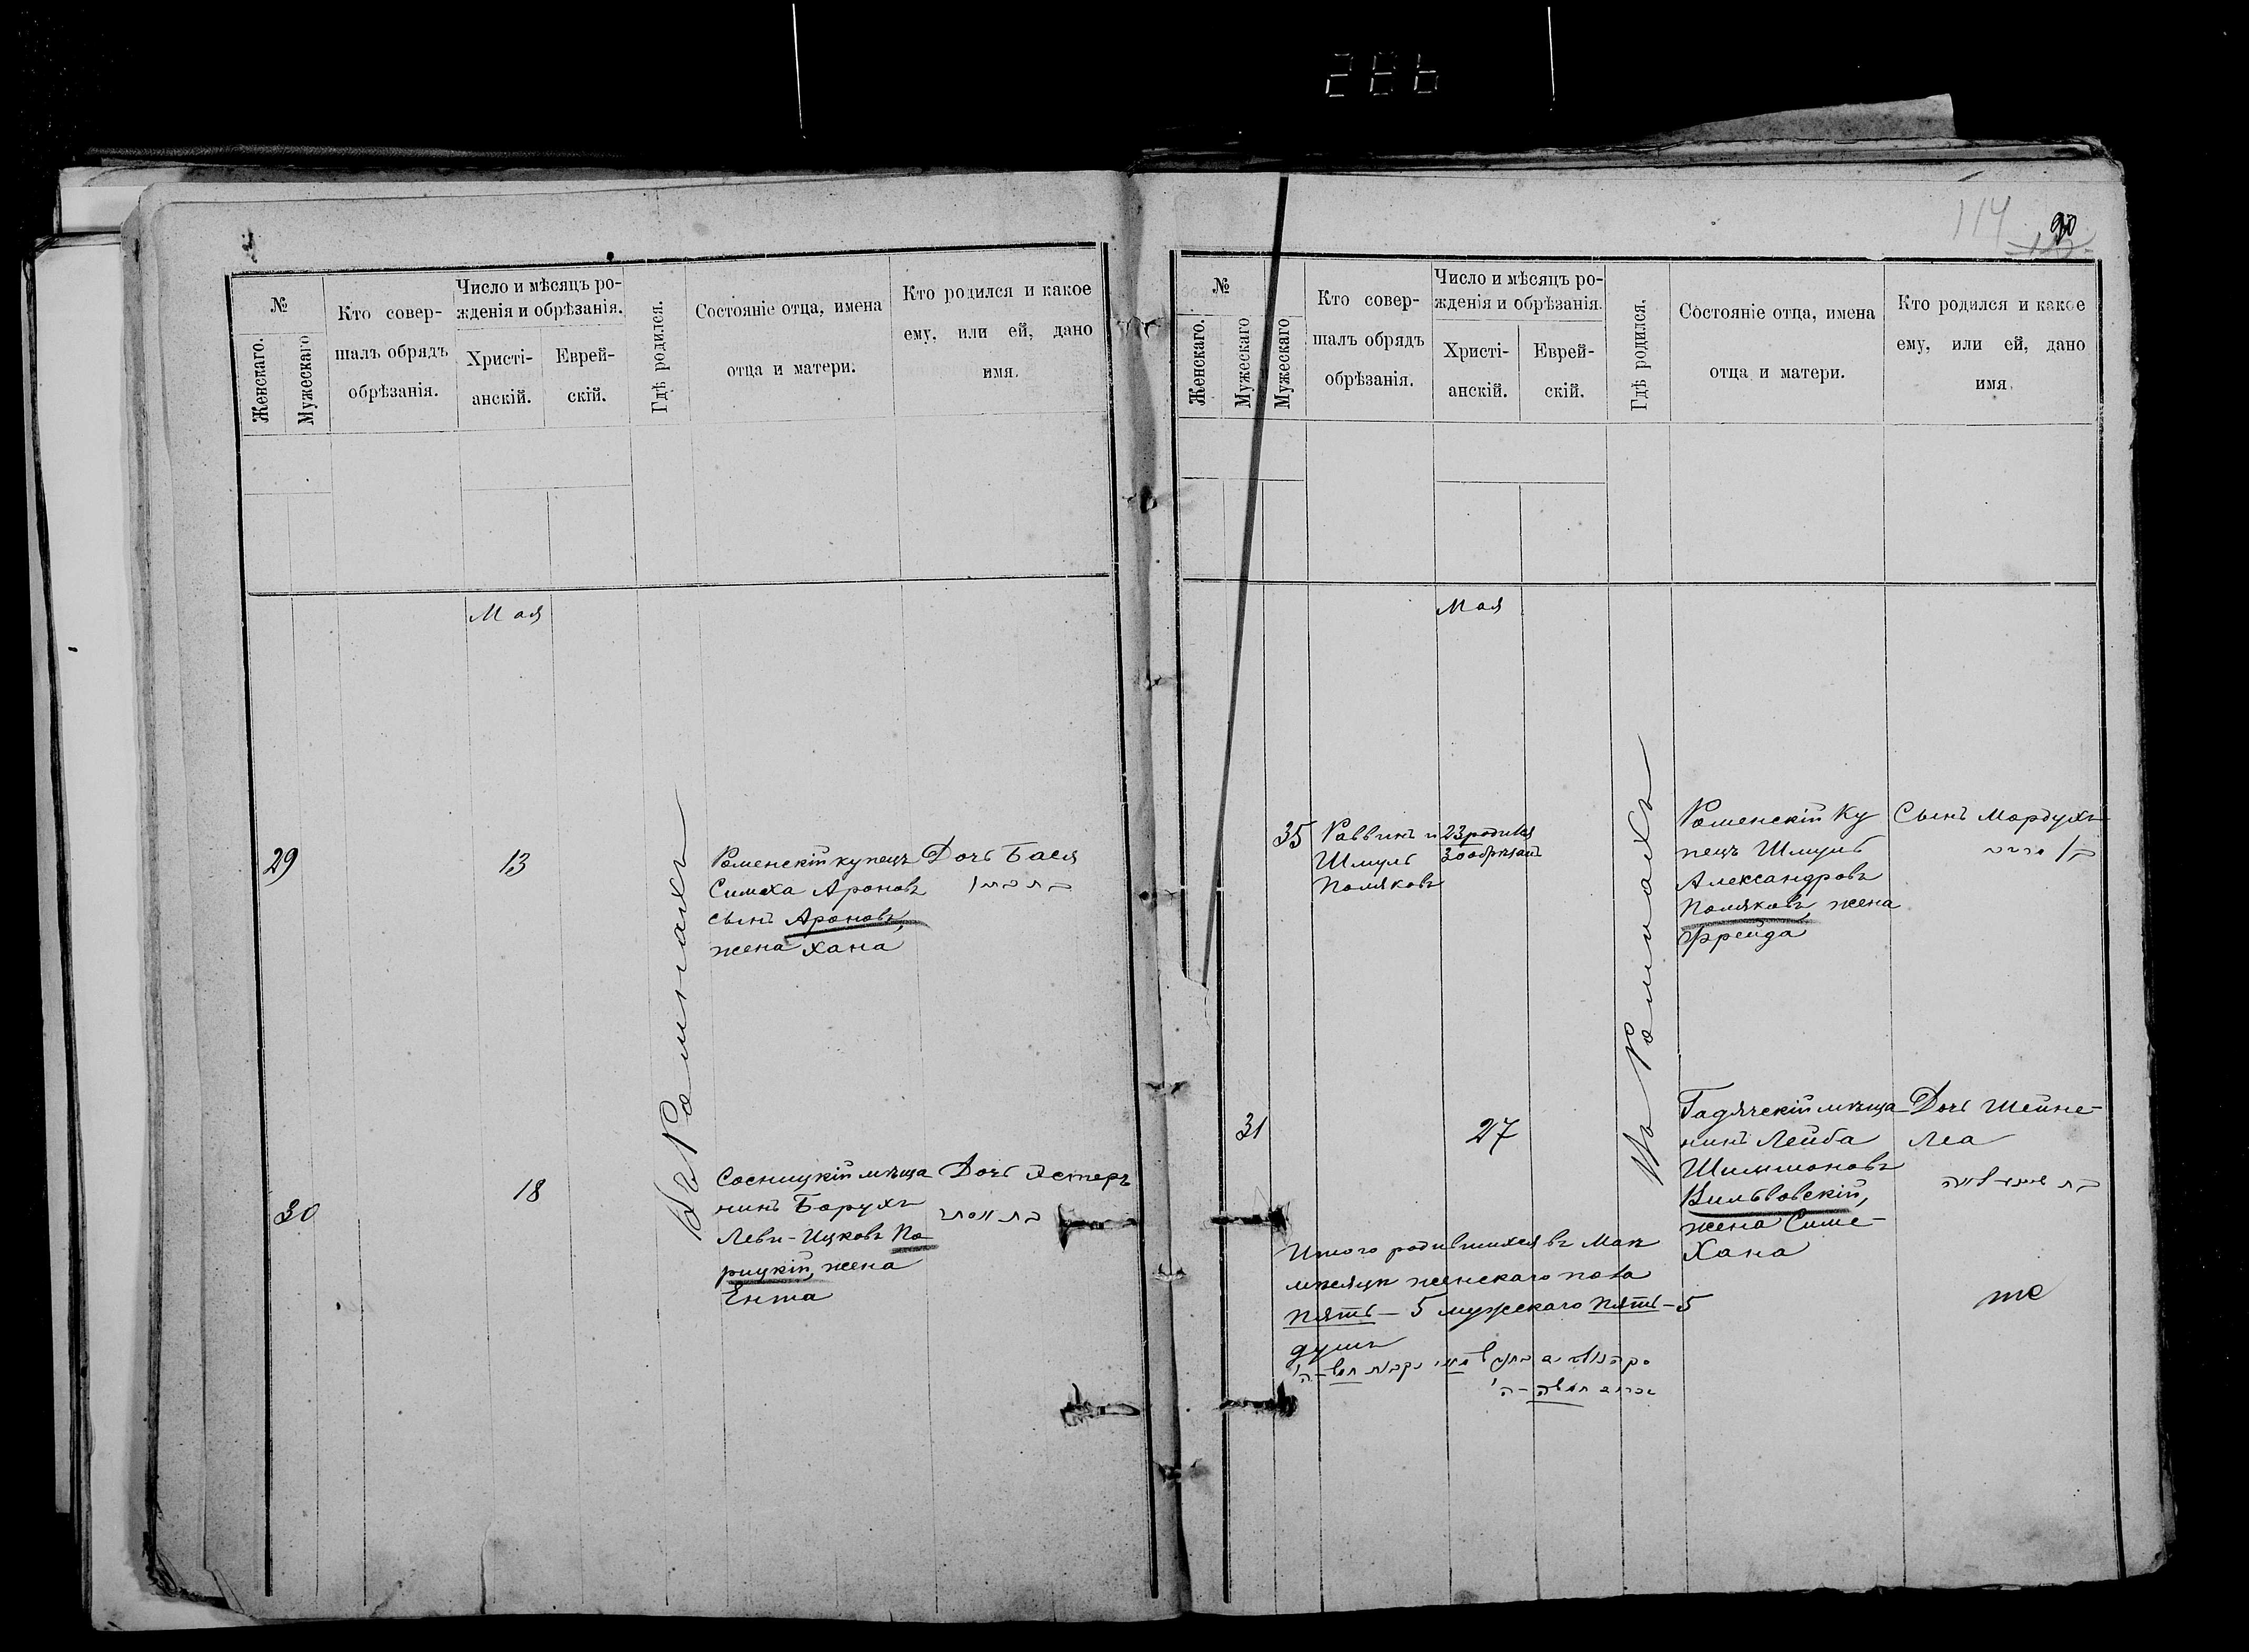 286
№
Женскаго.
Мужескаго
Кто совер-
шалъ обрядъ
обрѣзанія.
Число и мѣсяцъ ро-
жденія и обрѣзанія.
Христі-
анскій.
Еврей-
скій.
Гдѣ родился.
Состояніе отца, имена
отца и матери.
Кто родился и какое
ему, или ей, дано
имя.
Мая
29
13
Въ Ромнахъ
Роменскій купецъ
Симха Ароновъ
сынъ Ароновъ,
жена Хана
Дочь Бася
30
18
Сосницкій мѣща
нинъ Борухъ
Леви-Ицковъ По
рицкій, жена
Ента
Дочь Эстеръ
114
90
№
Женскаго.
Мужескаго
Мужескаго
Кто совер-
шалъ обрядъ
обрѣзанія.
Число и мѣсяцъ ро-
жденія и обрѣзанія.
Христі-
анскій.
Еврей-
скій.
Гдѣ родился.
Состояніе отца, имена
отца и матери.
Кто родился и какое
ему, или ей, дано
имя.
Мая
35
Раввинъ и
Шмуль
Поляковъ
23 родился
30 обрѣзанъ
Въ Ромнахъ
Роменскій Ку
пецъ Шмуль
Александровъ
Поляковъ, жена
Фрейда
Сынъ Мордухъ
31
27
Гадячскій мѣща
нинъ Лейба
Шимшоновъ
Вильвовскій,
жена Симе-
Хана
Дочь Шейне-
Леа
Итого родившихся въ Маѣ
мѣсяцѣ женскаго пола
пять – 5 мужескаго пять – 5
душъ